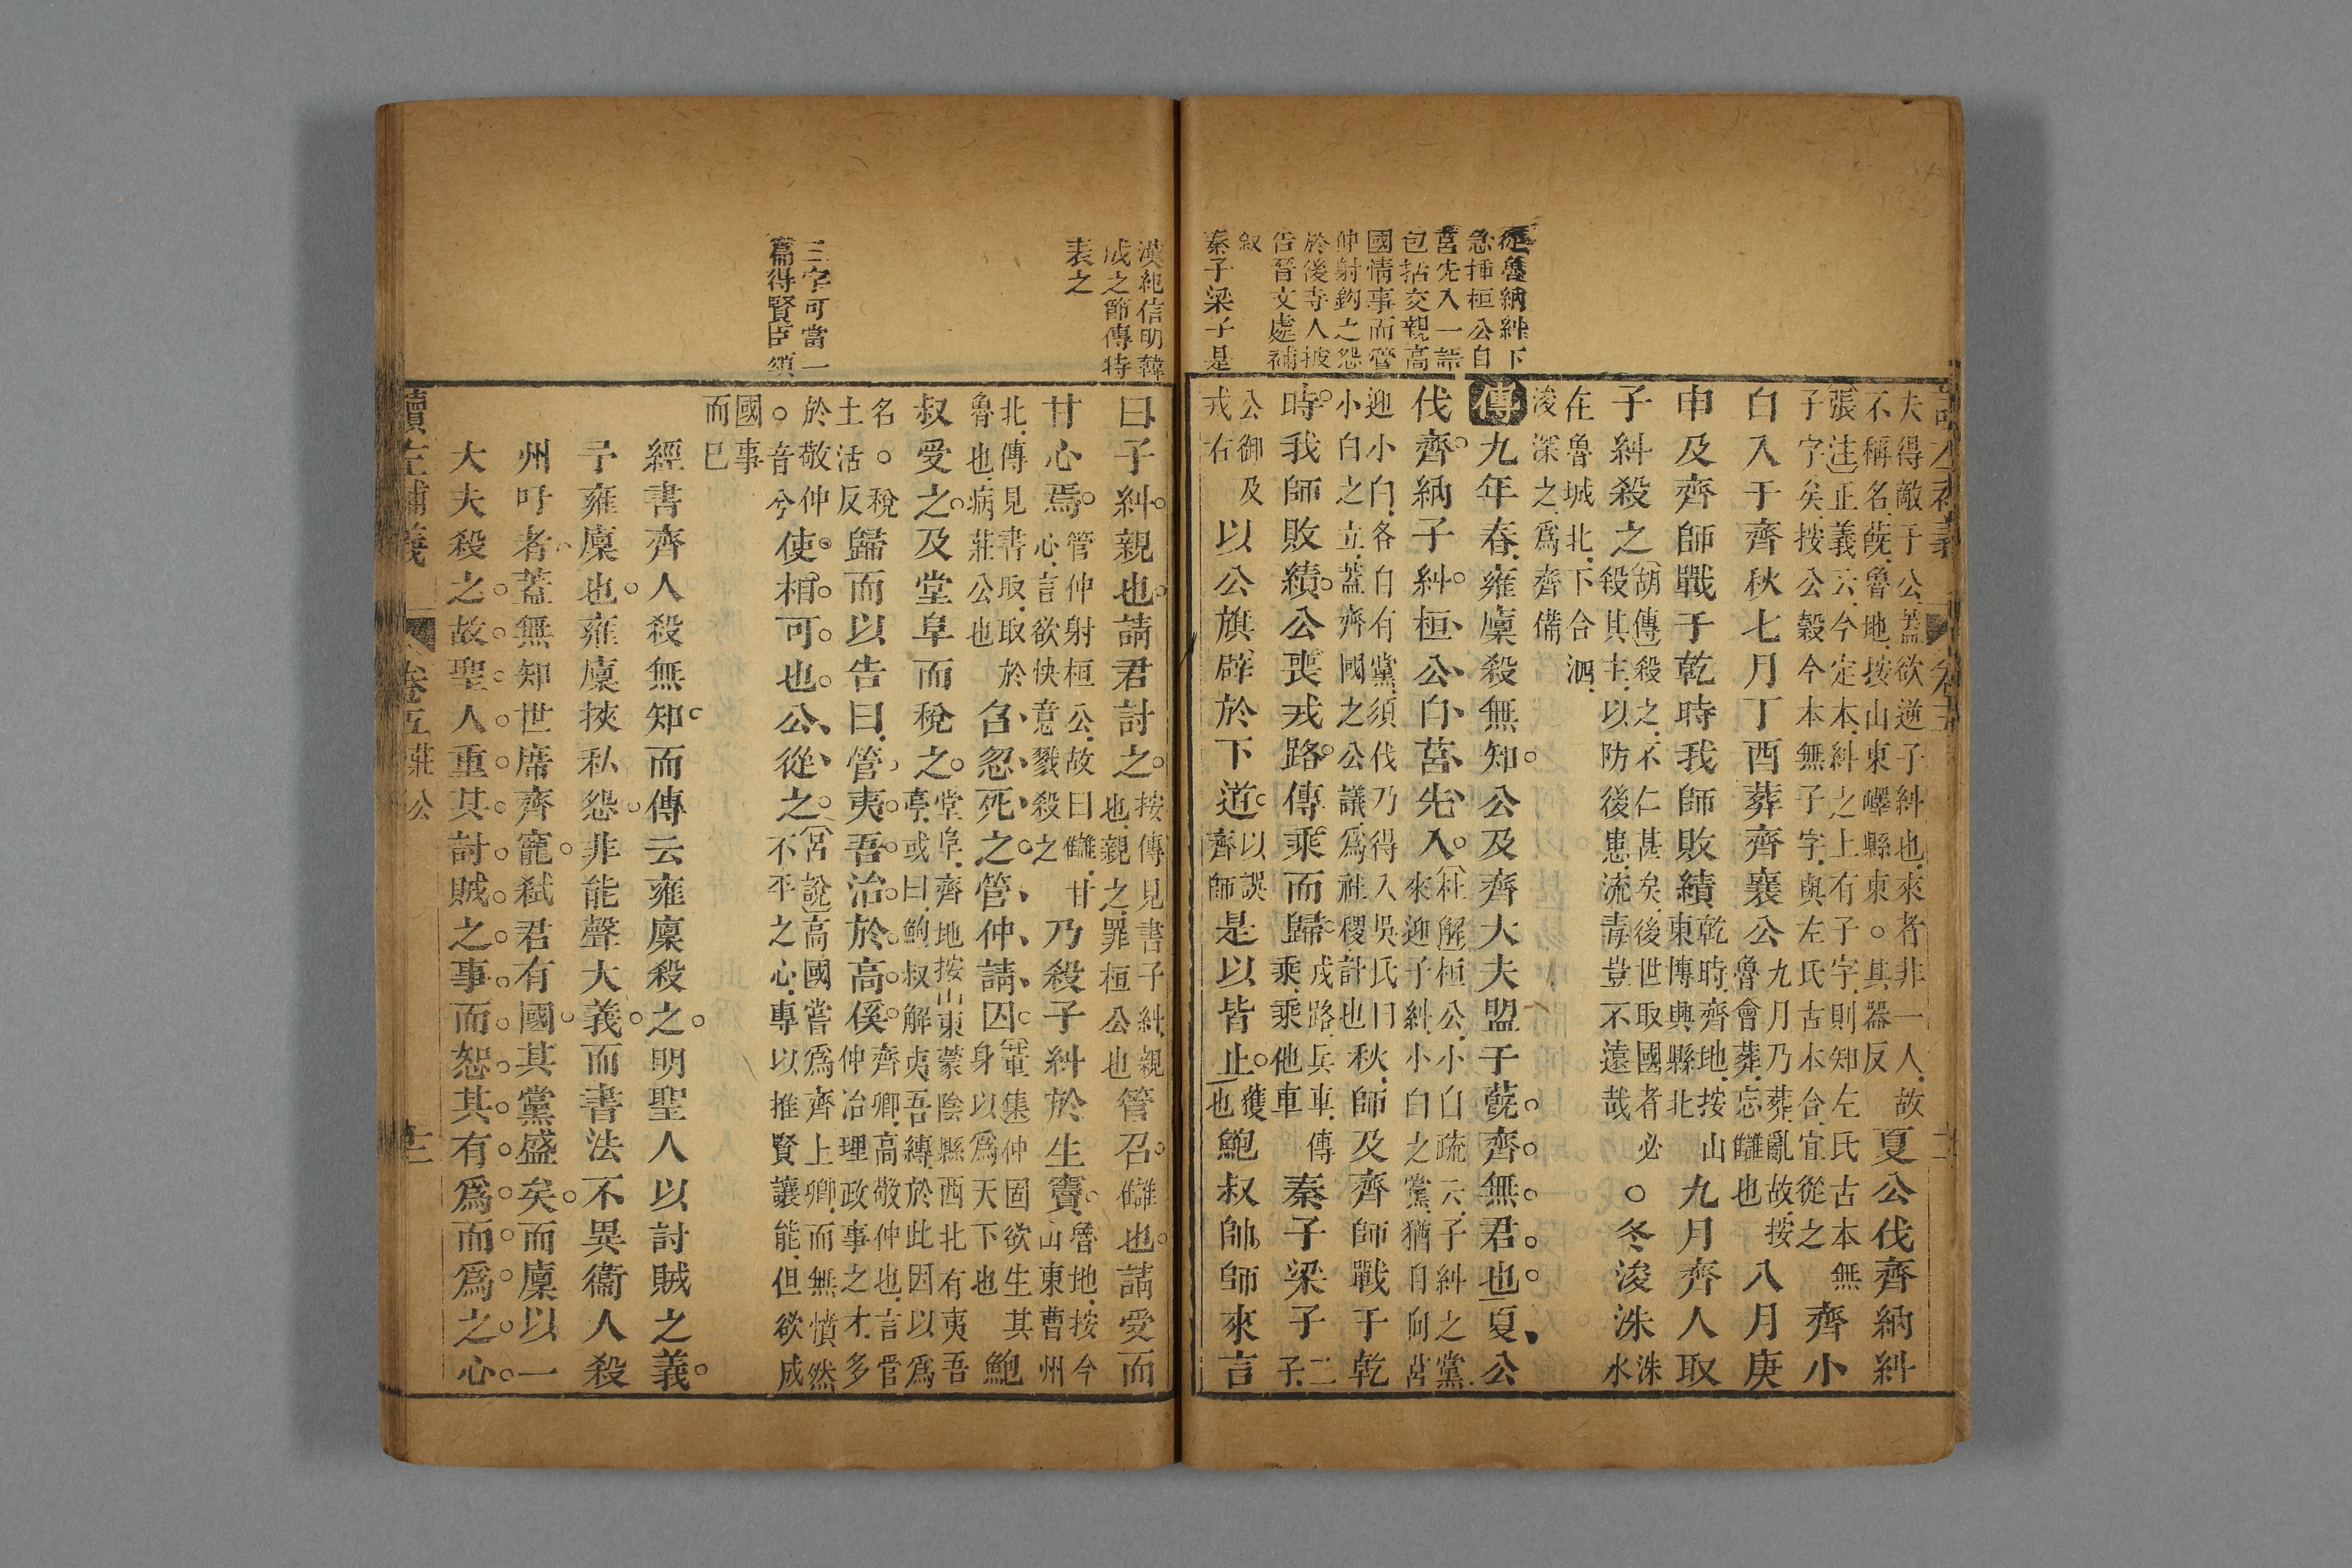 夫得敵于公葢欲逆子糾也來者非一人故
不稱名蔇魯地按山東嶧縣東○其器反
夏公伐齊納糾
張注正義云今定本糾之上有子字則知左氏古本無
子字矣按公穀今本無子字與左氏古本合宜從之
齊小
白入于齊秋七月丁酉葬齊襄公
九月乃葬亂故按
魯會葬忘讎也
八月庚
申及齊師戰于乾時我師敗績
乾時齊地按山
東博興縣北
九月齊人取
子糾殺之
胡傳殺之不仁甚矣後世取國者必
殺其主以防後患流毒豈不遠哉
○冬浚洙
洙
水
在魯城北下合泗
浚深之爲齊備
傳九年春雍廩殺無知公及齊大夫盟于蔇齊無君也夏公
伐齊納子糾桓公自莒先入
杜解桓公小白疏云子糾之黨
來迎子糾小白之黨猶自向莒
迎小白各自有黨須伐乃得入吳氏曰
小白之立葢齊國之公議爲社稷計也
秋師及齊師戰于乾
時我師敗績公喪戎路傳乘而歸
戎路兵車傳
乘乘他車
秦子梁子
二
子
公御及
戎右
以公旗辟於下道
以誤
齊師
是以皆止
獲
也
鮑叔帥師來言
從魯納糾下
急挿桓公自
莒先入一語
包括交親高
國情事而管
仲射鉤之怨
於後寺人披
告晉文處補
叙
秦子梁子是
漢紀信明韓
成之節傳特
表之
曰子糾親也請君討之
按傳見書子糾親
也親之罪桓公也
管召讎也請受而
甘心焉
管仲射桓公故曰讎甘
心言欲快意戮殺之
乃殺子糾於生竇
魯地按今
山東曹州
北傳見書取取於
魯也病莊公也
召忽死之管仲請囚
董集仲固欲生其
身以爲天下也
鮑
叔受之及堂阜而稅之
堂阜齊地按山東蒙陰縣西北有夷吾
亭或曰鮑叔解夷吾縳於此因以爲
名○稅
土活反
歸而以告曰管夷吾治於高傒
齊卿高敬仲也言管
仲治理政事之才多
於敬仲
○音兮
使相可也公從之
宮說高國嘗爲齊上卿而無憤然
不平之心專以推賢讓能但欲成
國事
而巳
三字可當一
篇得賢臣頌
經書齊人殺無知而傳云雍廩殺之明聖人以討賊之義
予雍廩也雍廩挾私怨非能聲大義而書法不異衞人殺
州吁者葢無知世席齊寵弑君有國其黨盛矣而廩以一
大夫殺之故聖人重其討賊之事而恕其有爲而爲之心
讀左補義 卷五 莊公 十二